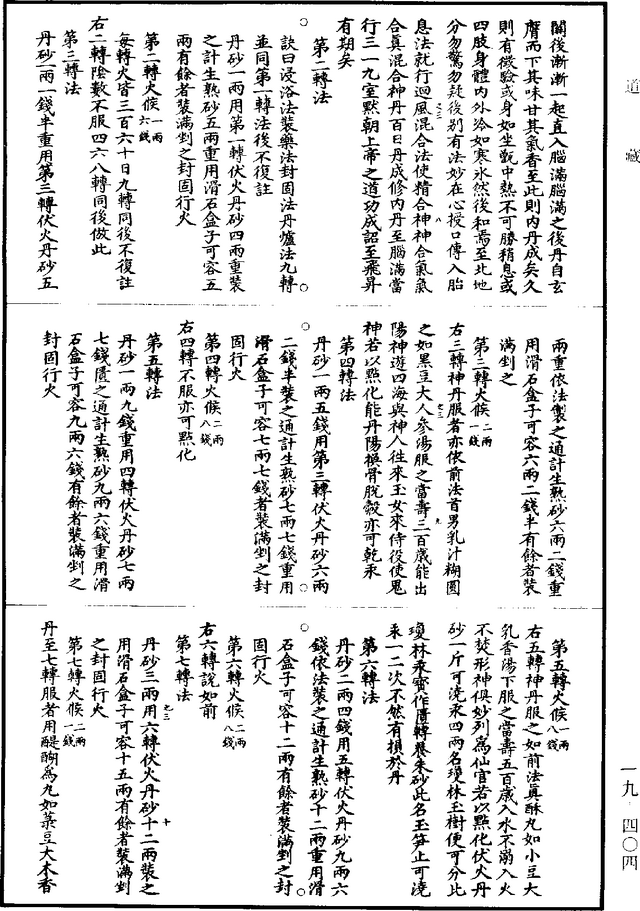 道藏
關後漸漸一起直入腦滿腦滿之後丹自玄
膺而下其味甘其氣香至此則內丹成矣久
則有微驗或身如坐甑中熱不可勝稍息或
四肢身體內外冷如寒氷然後和焉至此地
分勿驚勿疑後别有法妙在心授口傳入胎
息法就行迴風混合法使精合神神合氣氣
合眞混合神丹百日丹成修內丹至腦滿當
行三一九室默朝上帝之道功成詔至飛昇
有期矣
第二轉法
訣曰浸浴法裝藥法封固法丹爐法九轉
並同第一轉法後不復註
丹砂一兩用第一轉伏火丹砂四兩重裝
之計生熟砂五兩重用滑石盒子可容五
兩有餘者裝滿剉之封固行火
第二轉火候一兩六錢
每轉火皆三百六十日九轉同後不復註
右二轉陰數不服四六八轉同後倣此
第三轉法
丹砂一兩一錢半重用第三轉伏火丹砂五
兩重依法製之通計生熟砂六兩二錢重
用滑石盒子可容六兩二錢半有餘者裝
滿剉之
第三轉火候二兩一錢
右三轉神丹服者亦依前法首男乳汁糊圓
之如黑豆大人參湯服之當壽三百歲能出
陽神遊四海與神人往來玉女來侍役使鬼
神若以點化能丹陽換骨脫殼亦可乾汞
第四轉法
丹砂一兩五錢用第三轉伏火丹砂六兩
二錢半裝之通計生熟砂七兩七錢重用
滑石盒子可容七兩七錢者裝滿剉之封
固行火
第四轉火候二兩八錢
右四轉不服亦可點化
第五轉法
丹砂一兩九錢重用四轉伏火丹砂七兩
七錢匱之通計生熟砂九兩六錢重用滑
石盒子可容九兩六錢有餘者裝滿剉之
封固行火
第五轉火候一兩八錢
右五轉神丹服之如前法眞酥丸如小豆大
乳香湯下服之當壽五百歲入水不溺入火
不焚形神俱妙列爲仙官若以點化伏火丹
砂一斤可澆汞四兩名瓊林玉樹便可分此
瓊林汞寳作匱轉養朱砂此名玉笋止可澆
汞一二次不然有損於丹
第六轉法
丹砂二兩四錢用五轉伏火丹砂九兩六
錢依法裝之通計生熟砂十二兩重用滑
石盒子可容十二兩有餘者裝滿剉之封
固行火
第六轉火候二兩八錢
右六轉說如前
第七轉法
丹砂三兩用六轉伏火丹砂十二兩裝之
用滑石盒子可容十五兩有餘者裝滿剉
之封固行火
第七轉火候二兩一錢
丹至七轉服者用醍醐爲丸如菉豆大木香
一九·四〇四